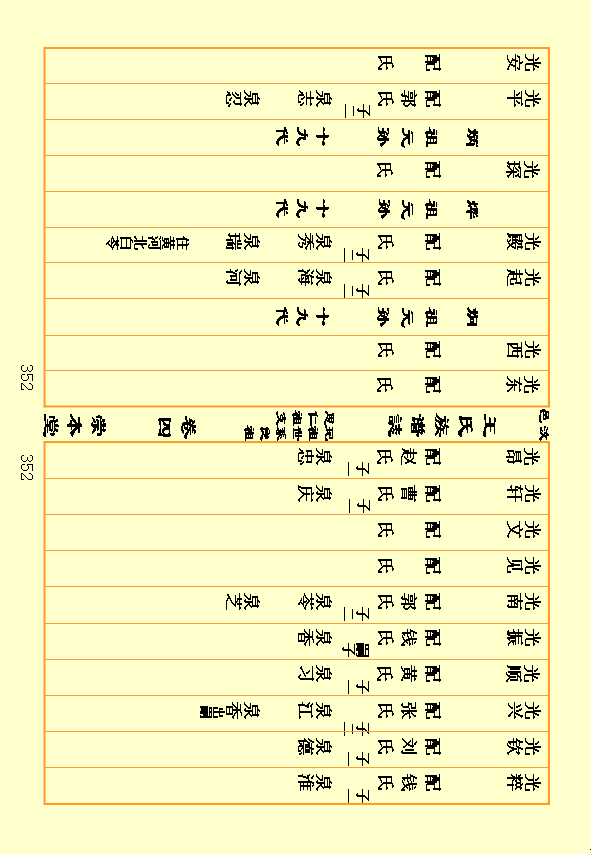 光粹 配钱氏 一子 泉淮
光钦 配刘氏 一子 泉德
光兴 配张氏 二子 泉江 泉香出嗣
光顺 配黄氏 一子 泉习
光振 配钱氏 嗣子 泉香
光南 配郭氏 二子 泉苓 泉芝
光见 配 氏
光文 配 氏
光轩 配曹氏 一子 泉庆
光昂 配赵氏 一子 泉忠
352
汶邑 王氏族谱誌 卷四 崇本堂
352
光东 配 氏
光西 配 氏
炯祖元孙十九代
光起 配 氏 二子 泉海 泉河
光殿 配 氏 二子 泉秀 泉瑞 住黄河北日苓
烨祖元孙十九代
光琛 配 氏
炳祖元孙十九代
光平 配郭氏 二子 泉志 泉忍
光安 配 氏